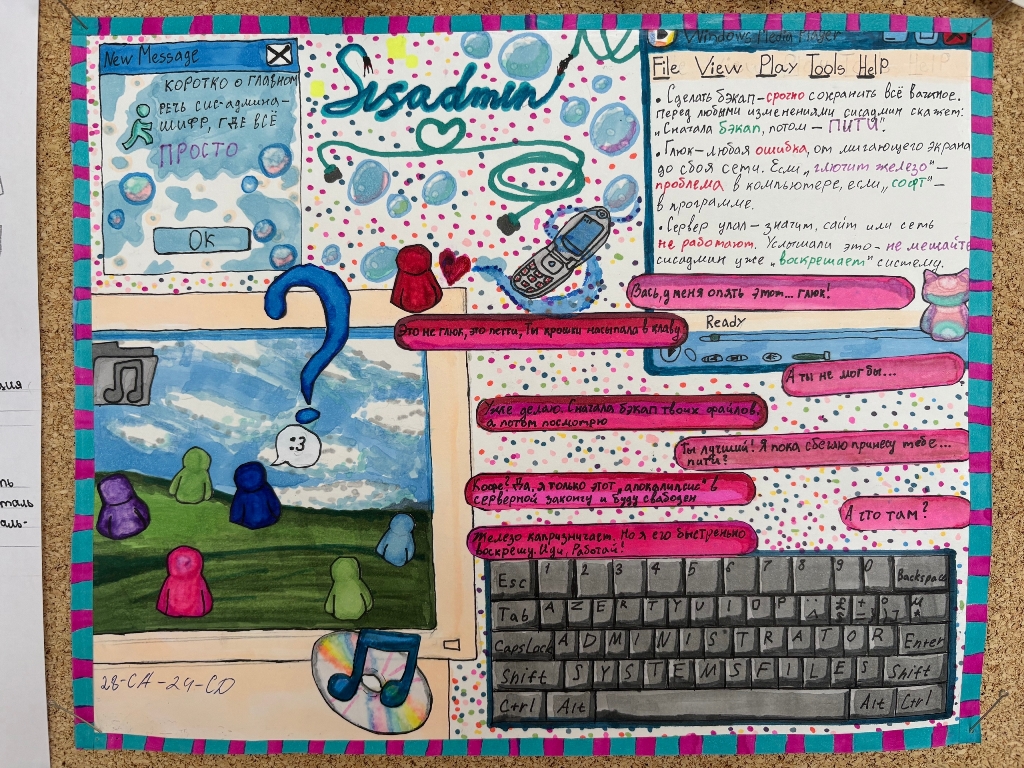 New Message
КОРОТКО О ГЛАВНОМ
РЕЧЬ СИС-АДМИНА-
ШИФР, ГДЕ ВСЁ
ПРОСТО
OK
Sisadmin
Windows Media Player
File View Play Tools Help
• Сделать бэкап-срочно сохранить всё важное.
Перед любыми изменениями сисадмин скажет:
"Сначала бэкап, потом - ПИТИ".
• Глюк-любая ошибка, от мигающего экрана
до сбоя сети. Если "глючит железо"-
проблема в компьютере, если "софт"-
в программе.
• Сервер упал-значит, сайт или сеть
не работают. Услышали это-не мешайте
сисадмин уже "воскрешает" систему.
Вась, у меня опять этот... глюк!
Ready
Это не глюк, это петти, Ты крошки насыпала в клаву
А ты не мог бы...
Уже делаю. Сначала бэкап твоих файлов,
а потом посмотрю
Ты лучший! Я пока сбегаю принесу тебе...
пити?
Кофе? Да, я только этот "апокалипсис" в
серверной закончу и буду свабоден
А что там?
Железо капризничает. Но я его быстренько
воскрешу. Иди, Работай!
:3
Esc 1 2 3 4 5 6 7 8 9 0 Backspace
Tab A Z E R T Y U I O P
CapsLock A D M I N I S T R A T O R Enter
Shift S Y S T E M S F I L E S Shift
Ctrl Alt Alt Ctrl
28-СА-24-СД